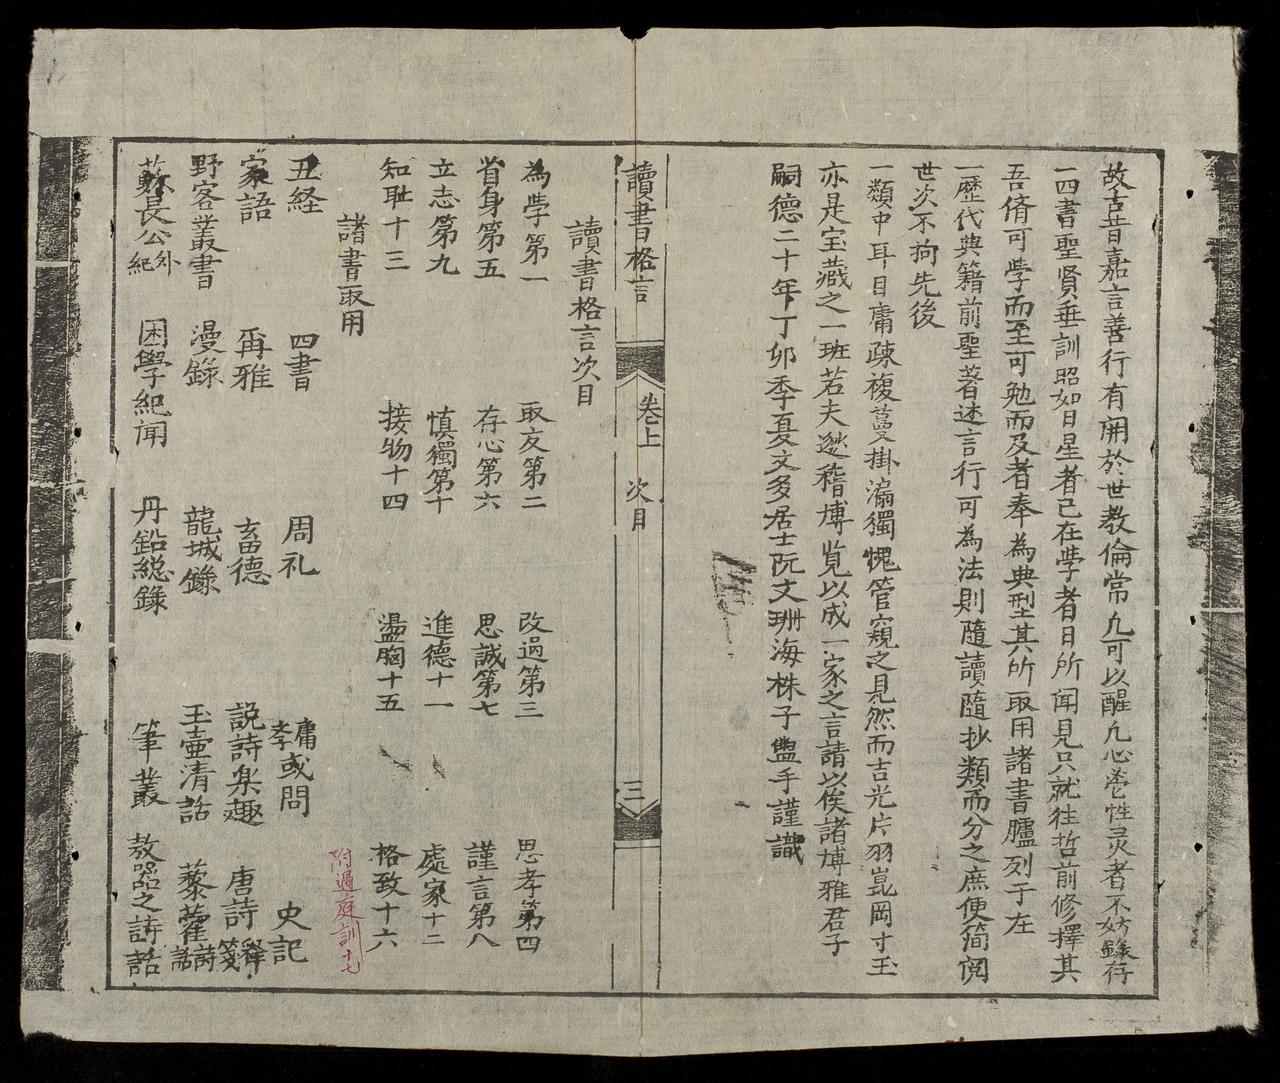 故古昔嘉言善行有開於世教倫常凢可以醒凢心花性灵者不妨錄存
一四書聖贤垂訓昭如日星者已在斈者日所聞見只就徃哲前修擇其
吾儕可斈而至可勉而及者奉為典型其所取用諸書臚列于左
一歷代典籍前聖著述言行可為法則隨讀隨抄類而分之庶便简阅
世次不拘先後
一類中耳目庸疎複蔓掛漏獨愧管窺之見然而吉光片羽崑岡寸玉
亦是宝蔵之一班若夫邀稽博覧以成一家之言請以俟諸博雅君子
嗣德二十年丁卯季夏文多居士阮文珊海株子盥手謹識
讀書格言
卷上
次目
三
讀書格言次目
為斈第一 取友第二 改過第三 思孝第四
省身第五 存心第六 思誠第七 謹言第八
立志第九 慎獨第十 進德十一 處家十二
知耻十三 接物十四 盪胸十五 格致十六
附過庭訓十七
諸書取用
五経 四書 周礼 庸孝或問 史記
家語 爾雅 畜德 説詩楽趣 唐詩箋釋
野客叢書 漫錄 龍城錄 玉壷清話 藜藿詩話
蘇長公外紀 困學紀闻 丹鉛総錄 筆叢 敖器之詩話